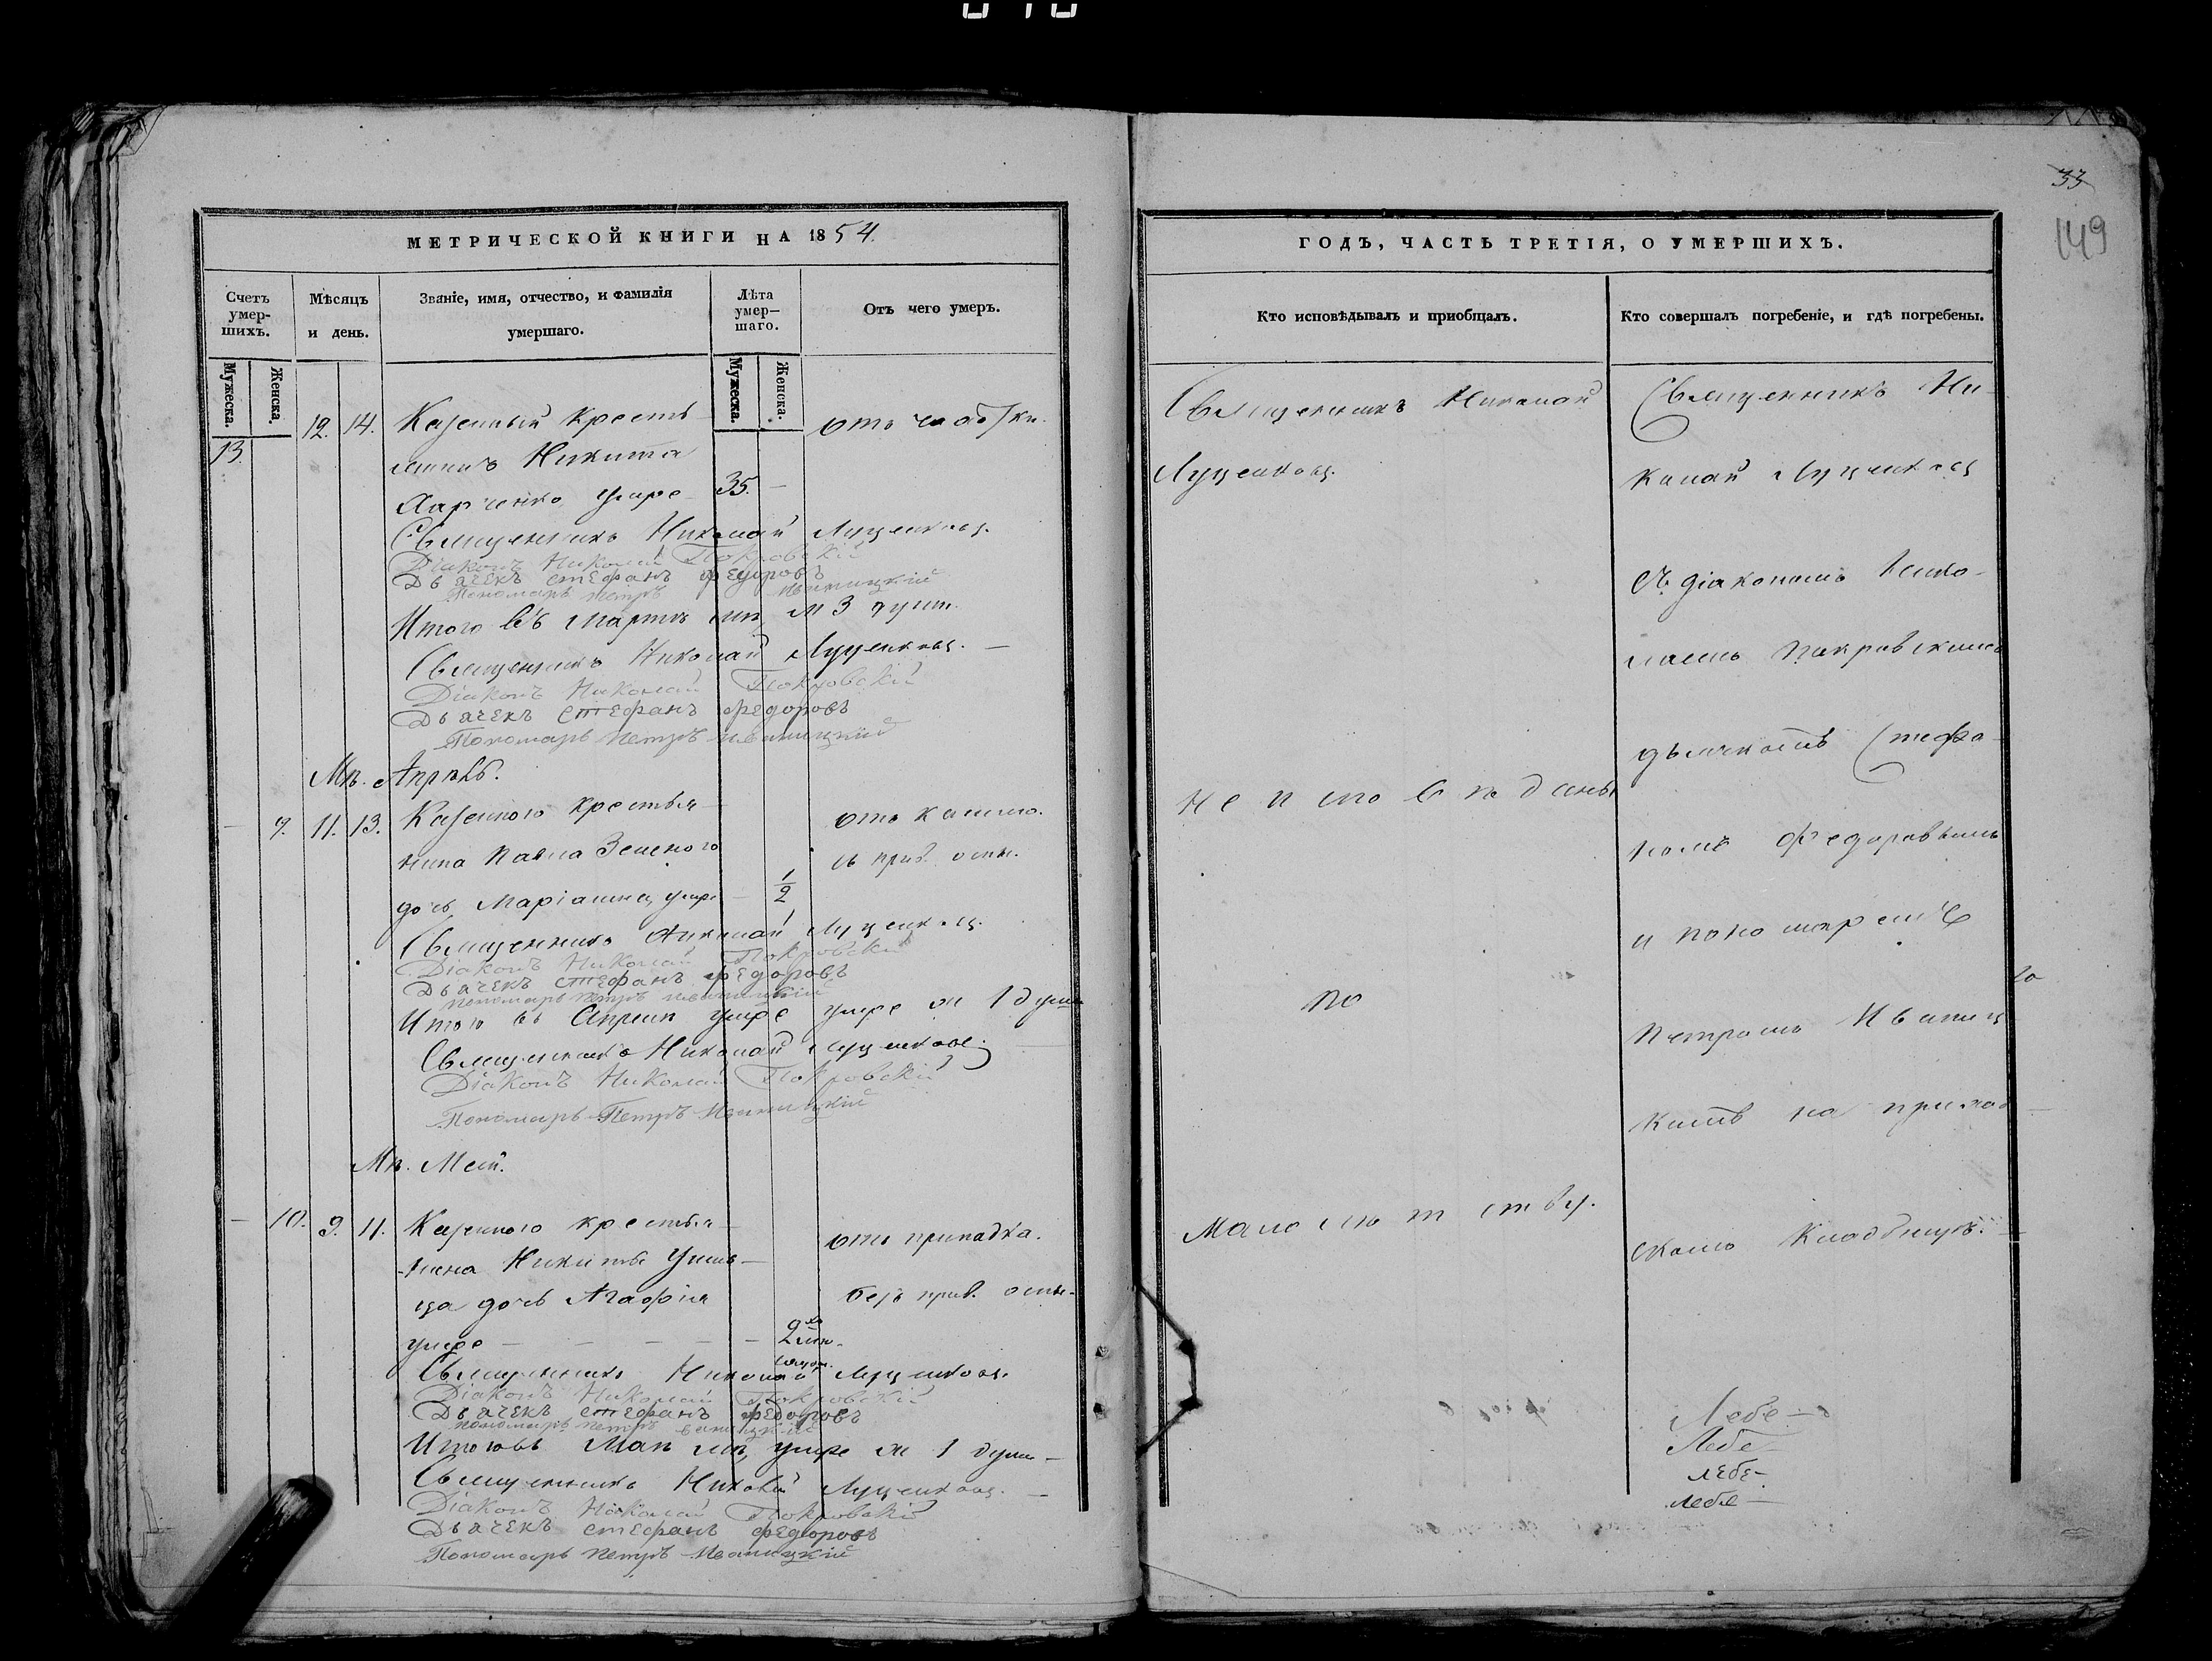 33
149
МЕТРИЧЕСКОЙ КНИГИ НА 1854.
Счетъ умер-шихъ.
Мѣсяцъ и день.
Званіе, имя, отчество, и фамилія умершаго.
Лѣта умер—шаго.
Отъ чего умеръ.
Мужеска.
Женска.
Мужеска.
Женска.
13.
12. 14. Казенный кресть-
янинъ Никита
Харченко умре 35. —
отъ чахотки.
Священникъ Николай
Діаконъ Николай Покровскій
Дьячекъ Стефанъ Федоровъ
Пономарь Петръ
Итого въ Мартѣ м 3 души.
Священникъ Николай
Діаконъ Николай Покровскій
Дьячекъ Стефанъ Федоровъ
Пономарь Петръ
Мц. Апрѣль.
— 9. 11. 13. Казенного крестья-
нина Павла Зеленого
дочь Маріанна умре — 1/2
отъ кашлю.
съ прив. оспы.
Священникъ Николай
Діаконъ Николай Покровскій
Дьячекъ Стефанъ Федоровъ
Пономарь Петръ
Итого въ Априли умре ж 1 душа
Священникъ Николай
Діаконъ Николай Покровскій
Пономарь Петръ
Мц. Маій.
— 10. 9. 11. Казенного крестья-
нина Никиты
дочь Агафія
умре — — — — — 2
отъ припадка.
безъ прив. оспы.
Священникъ Николай
Діаконъ Николай Покровскій
Дьячекъ Стефанъ Федоровъ
Пономарь Петръ
Итого въ Маѣ мц. умре ж 1 душа —
Священникъ
Діаконъ Николай Покровскій
Дьячекъ Стефанъ Федоровъ
Пономарь Петръ
ГОДЪ, ЧАСТЬ ТРЕТІЯ, О УМЕРШИХЪ.
Кто исповѣдывалъ и пріобщалъ.
Кто совершалъ погребеніе, и гдѣ погребены.
Священникъ Николай
Не исповѣданы
по
малолѣтству.
Священникъ Ни-
колай
съ діакономъ Нико-
лаемъ Покровскимъ
дьячкомъ Стефа-
номъ Федоровымъ
и пономаремъ
Петромъ
на приход-
скомъ кладбищѣ.
Лебе—
Лебе
Лебе—
Лебе—